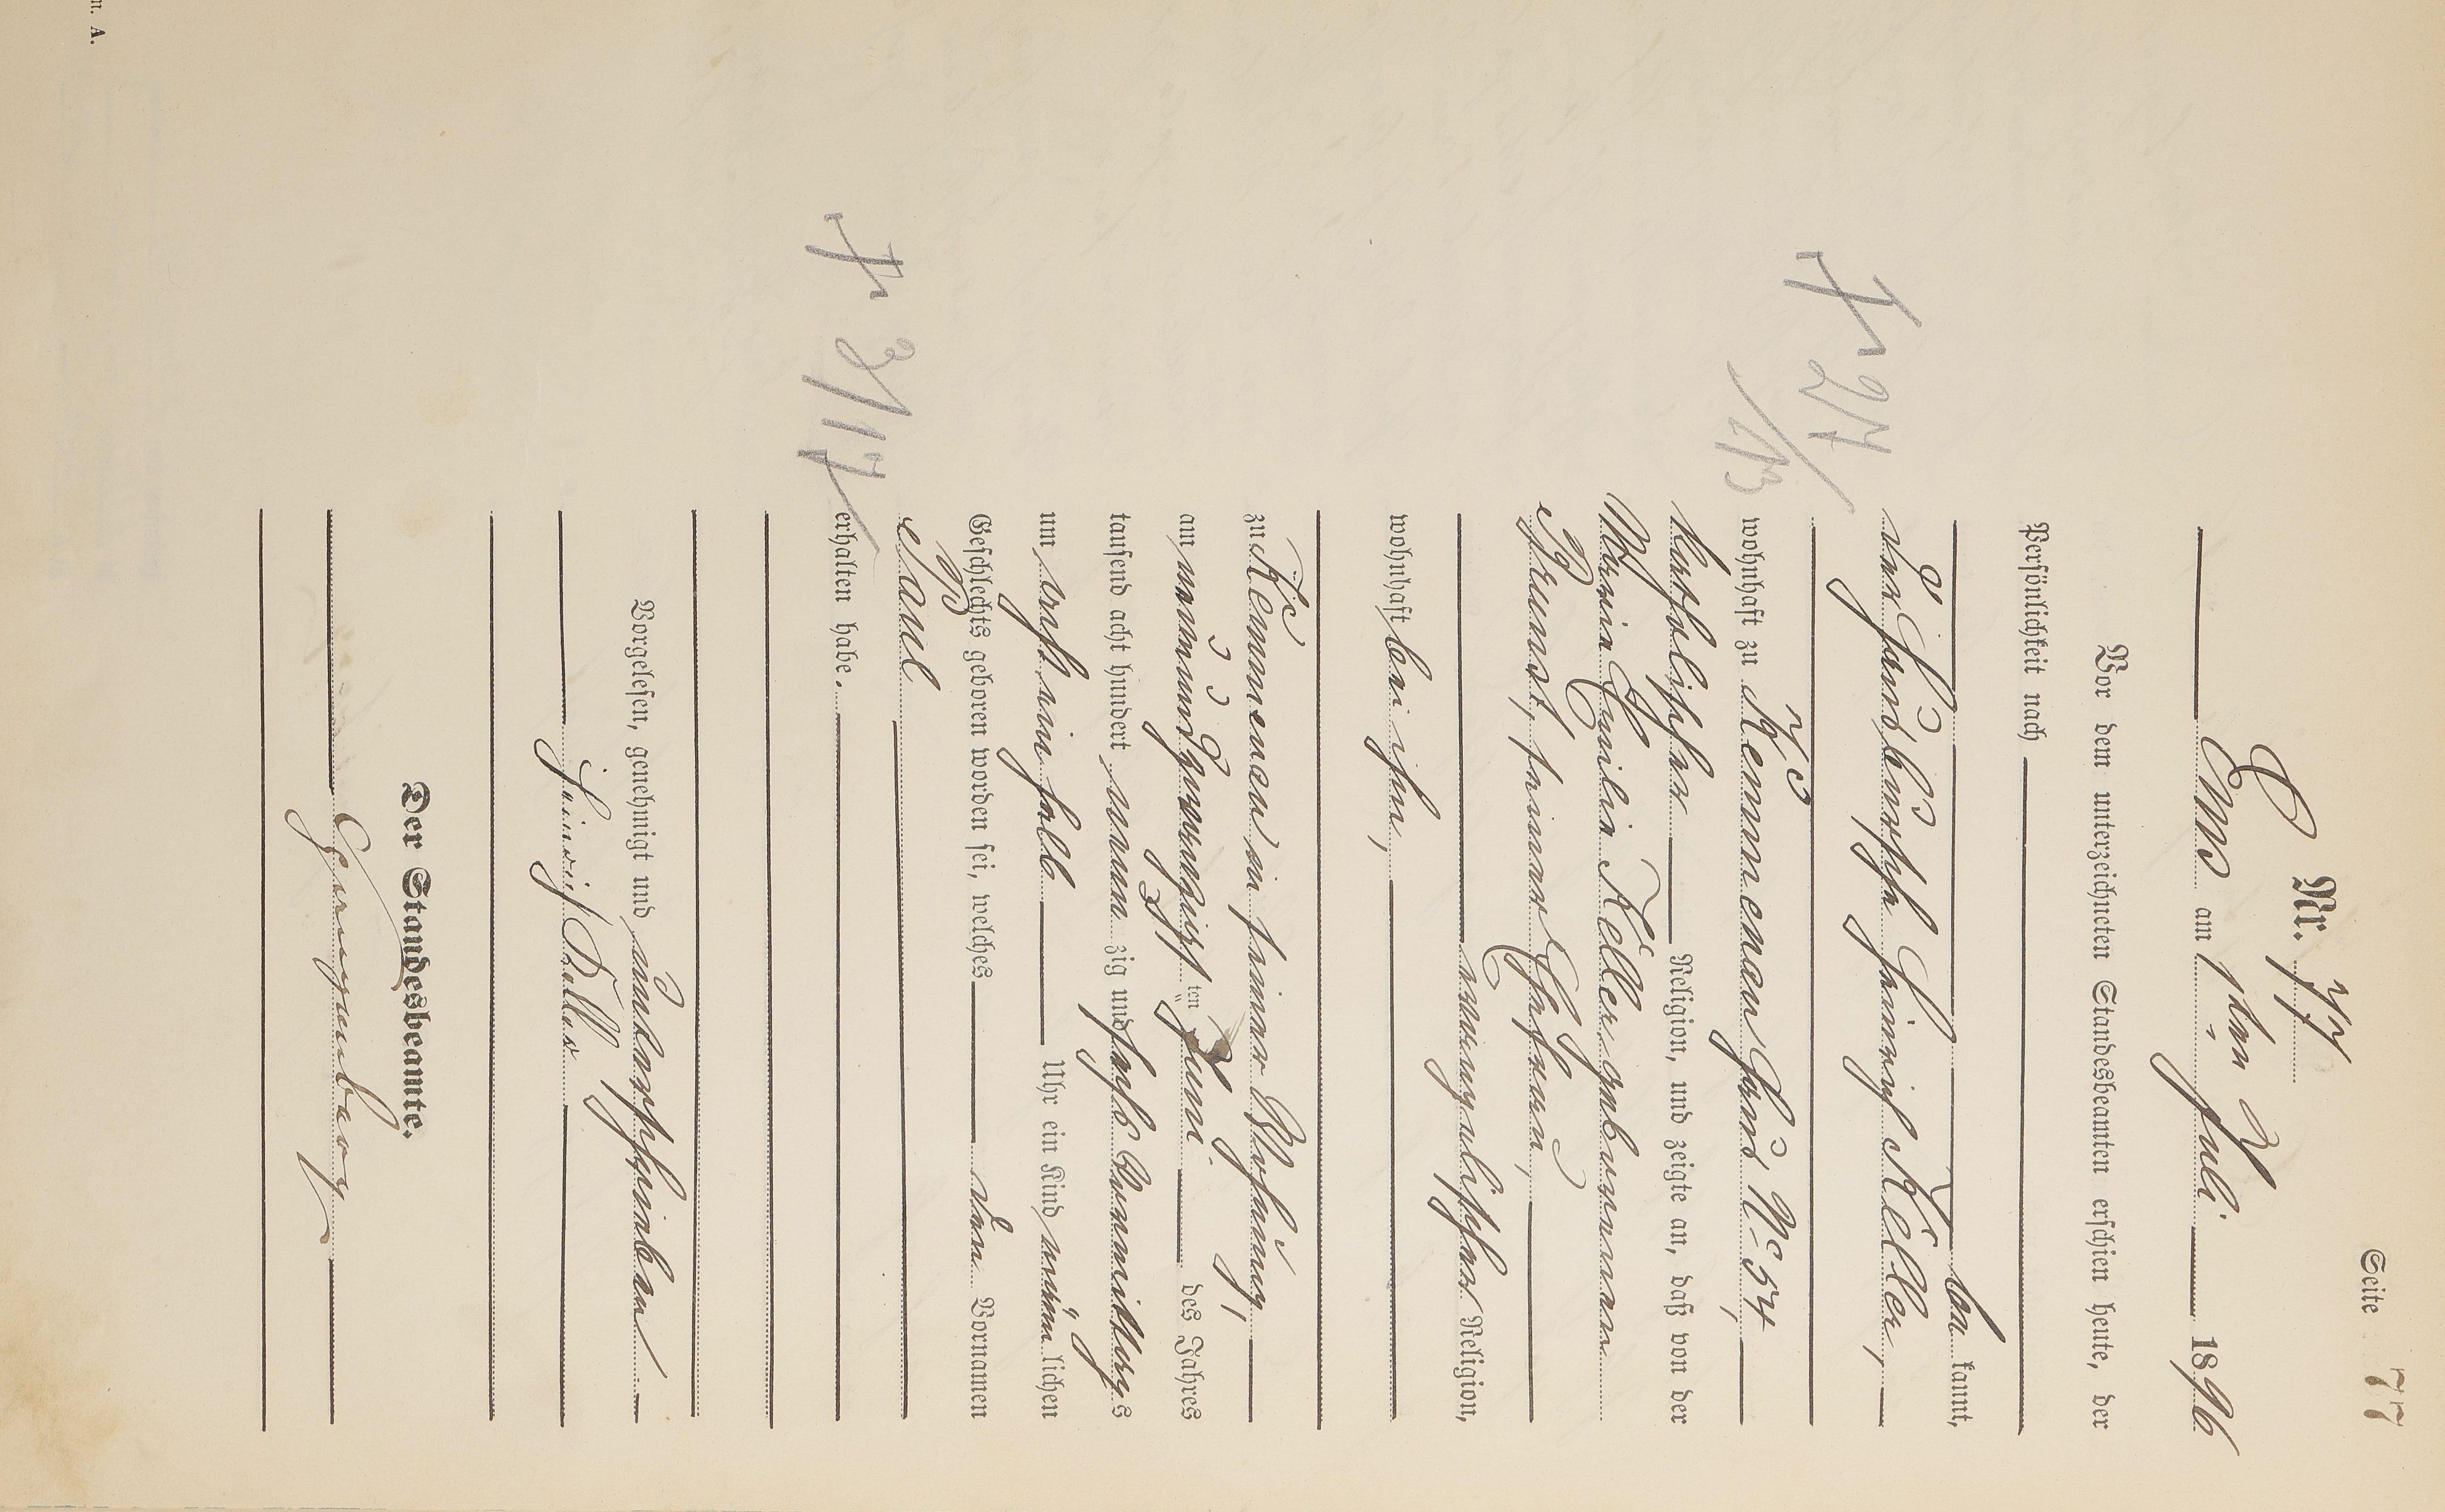 Seite 77
Nr. 77
Ems am 1ten Juli 1896
Vor dem unterzeichneten Standesbeamten erschien heute, der
Persönlichkeit nach
be kannt,
der Hausbursche Heinrich Keller,
wohnhaft zu Kemmenau Haus No 54,
katholischer Religion, und zeigte an, daß von der
Maria Emilie Keller geborenen
Brunst, seiner Ehefrau,
evangelischer Religion,
wohnhaft bei ihm,
zu Kemmenau in seiner Wohnung,
am neunundzwanzigsten Juni des Jahres
tausend acht hundert neun zig und sechs Vormittags
um acht ein halb Uhr ein Kind männlichen
Geschlechts geboren worden sei, welches den Vornamen
Paul
erhalten habe.
Vorgelesen, genehmigt und unterschrieben
Heinrich Keller
Der Standesbeamte.
n. A.